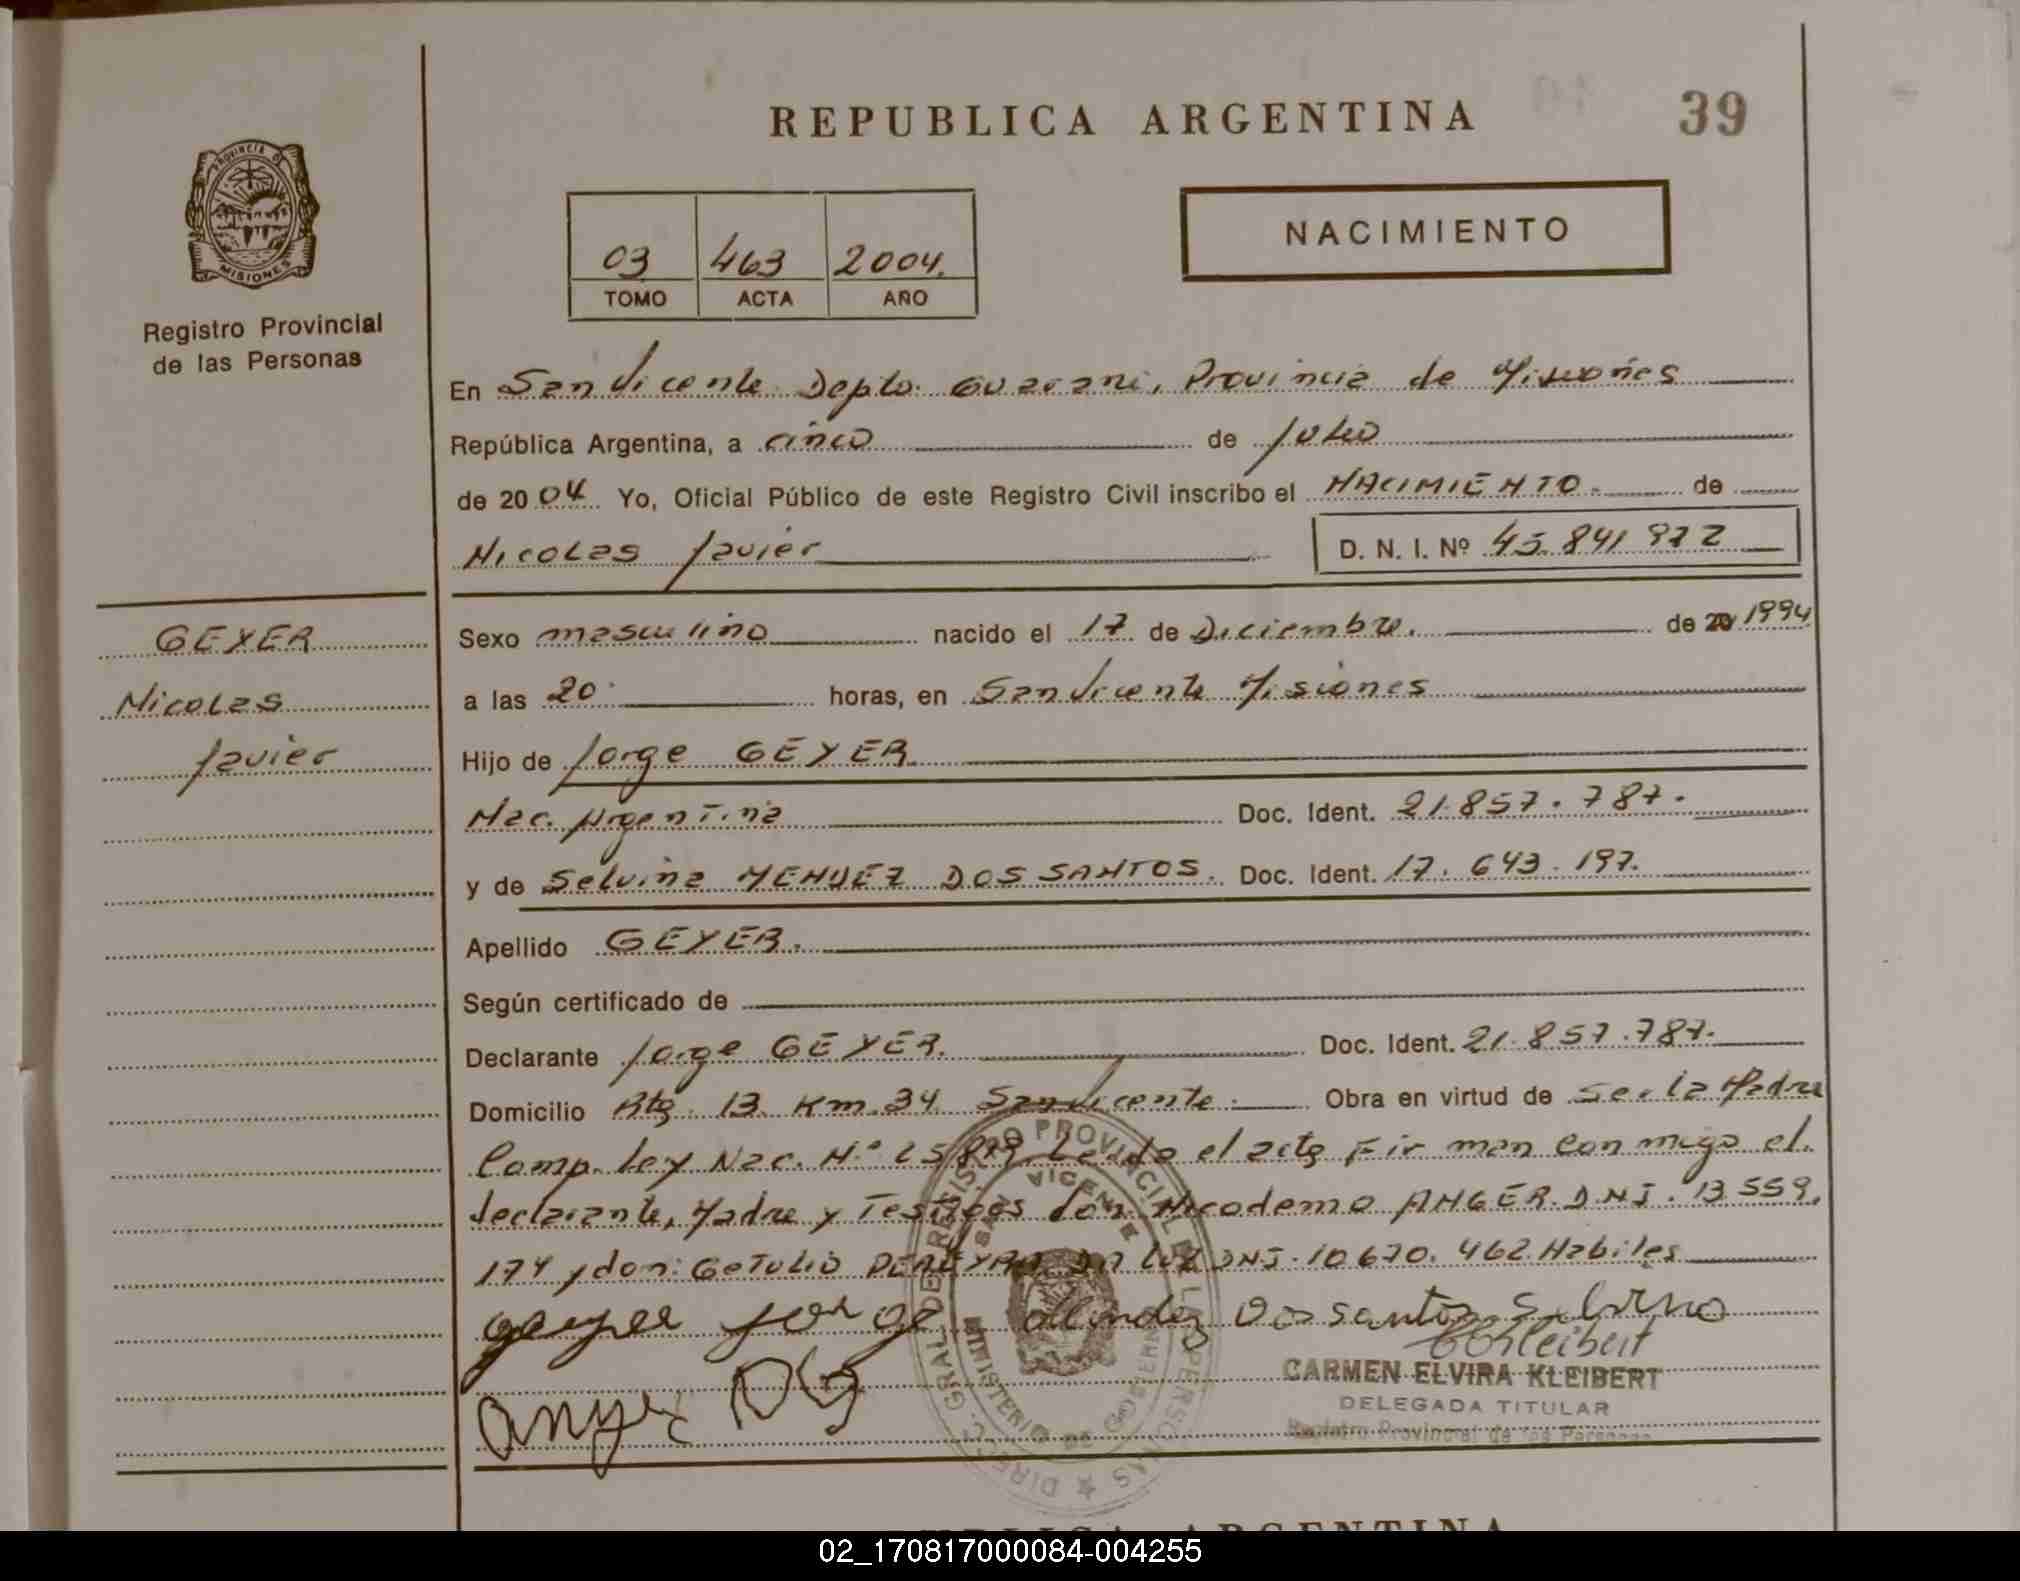 REPUBLICA ARGENTINA
39
PROVINCIA D
MISIONES
Registro Provincial
de las Personas
03 463 2004.
TOMO ACTA AÑO
NACIMIENTO
En San Vicente Depto. Guarani, Provincia de Misiones
República Argentina, a cinco de Julio
de 20 04 Yo, Oficial Público de este Registro Civil inscribo el NACIMIENTO. de
Nicolas Javier D. N. I. Nº 45.841 972
GEYER
Nicolas
Javier
Sexo masculino nacido el 17 de Diciembre. de 20 1994
a las 20. horas, en San Vicente Misiones
Hijo de Jorge GEYER
Nac. Argentina Doc. Ident. 21.857.787.
y de Selvina MENDEZ DOS SANTOS. Doc. Ident. 17.643.197.
Apellido GEYER.
Según certificado de
Declarante Jorge GEYER. Doc. Ident. 21.857.787.
Domicilio Rta. 13 Km.34 San Vicente. Obra en virtud de Ser la Madre
Comp. ley Nac. Nº 25819 Leida el acta Firman conmigo el
declarante, Madre y Testigos don Nicodemo ANGER. DNI. 13 559.
174 y don: Getulio PEREYRA DA LUZ DNI. 10 670. 462. Habiles
geyer jorge Mendez Dos santos Selvina
Kleibert
CARMEN ELVIRA KLEIBERT
DELEGADA TITULAR
Registro Provincial de las Personas
anger
DIREC. GRAL. DE REGISTRO PROVINCIAL DE LAS PERSONAS
SAN VICENTE
MINISTERIO DE GOBIERNO
ARGENTINA
02_170817000084-004255